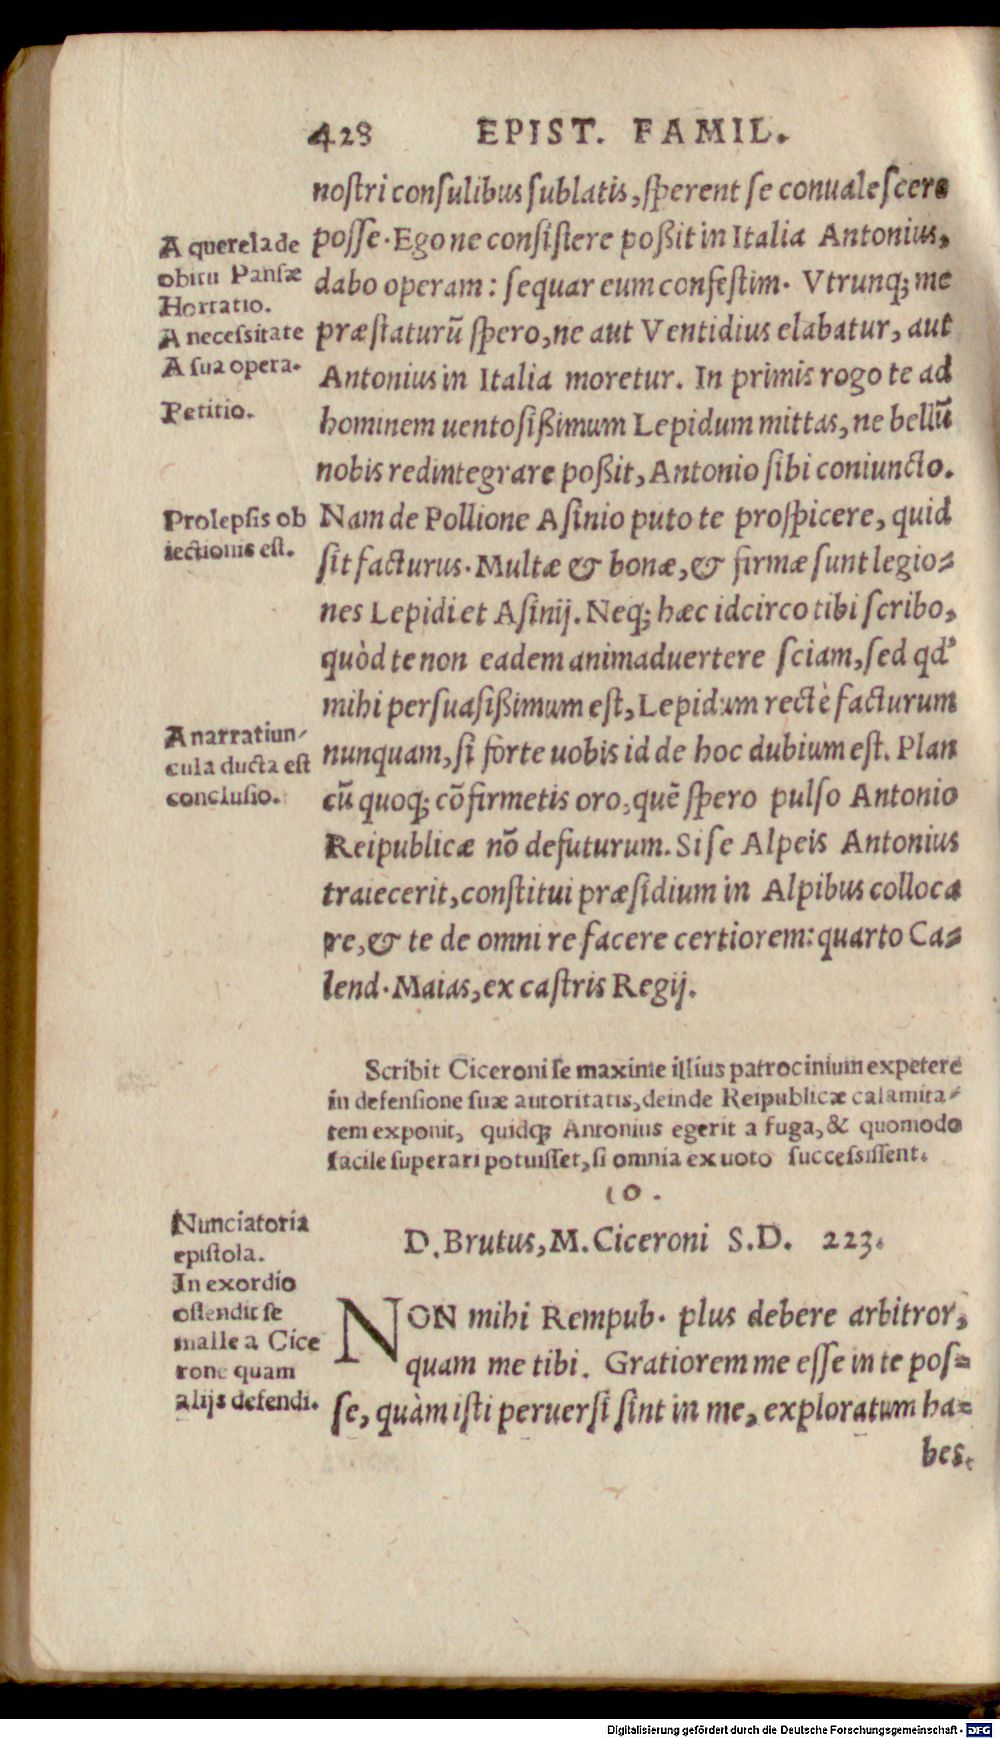 428 EPIST. FAMIL.
nostri consulibus sublatis, sperent se conualescere
posse. Ego ne consistere poßit in Italia Antonius,
dabo operam: sequar eum confestim. Vtrunq; me
præstaturũ spero, ne aut Ventidius elabatur, aut
Antonius in Italia moretur. In primis rogo te ad
hominem uentosißimum Lepidum mittas, ne bellũ
nobis redintegrare poßit, Antonio sibi coniuncto.
Nam de Pollione Asinio puto te prospicere, quid
sit facturus. Multæ & bonæ, & firmæ sunt legio-
nes Lepidi et Asinij. Neq; hæc idcirco tibi scribo,
quòd te non eadem animaduertere sciam, sed qd'
mihi persuasißimum est, Lepidum rectè facturum
nunquam, si forte uobis id de hoc dubium est. Plan
cũ quoq; cõfirmetis oro, quẽ spero pulso Antonio
Reipublicæ nõ defuturum. Si se Alpeis Antonius
traiecerit, constitui præsidium in Alpibus colloca
re, & te de omni re facere certiorem: quarto Ca-
lend. Maias, ex castris Regij.
A querela de
obitu Pansæ
Hortatio.
A necessitate
A sua opera.
Petitio.
Prolepsis ob
iectionis est.
A narratiun-
cula ducta est
conclusio.
Scribit Ciceroni se maxime illius patrocinium expetere
in defensione suæ autoritatis, deinde Reipublicæ calamita-
tem exponit, quidq; Antonius egerit a fuga, & quomodo
facile superari potuisset, si omnia ex uoto successissent.
10.
D. Brutus, M. Ciceroni S.D. 223.
NON mihi Rempub. plus debere arbitror,
quam me tibi. Gratiorem me esse in te pos-
se, quàm isti peruersi sint in me, exploratum ha-
bes.
Nunciatoria
epistola.
In exordio
ostendit se
malle a Cice
rone quam
alijs defendi.
Digitalisierung gefördert durch die Deutsche Forschungsgemeinschaft - DFG